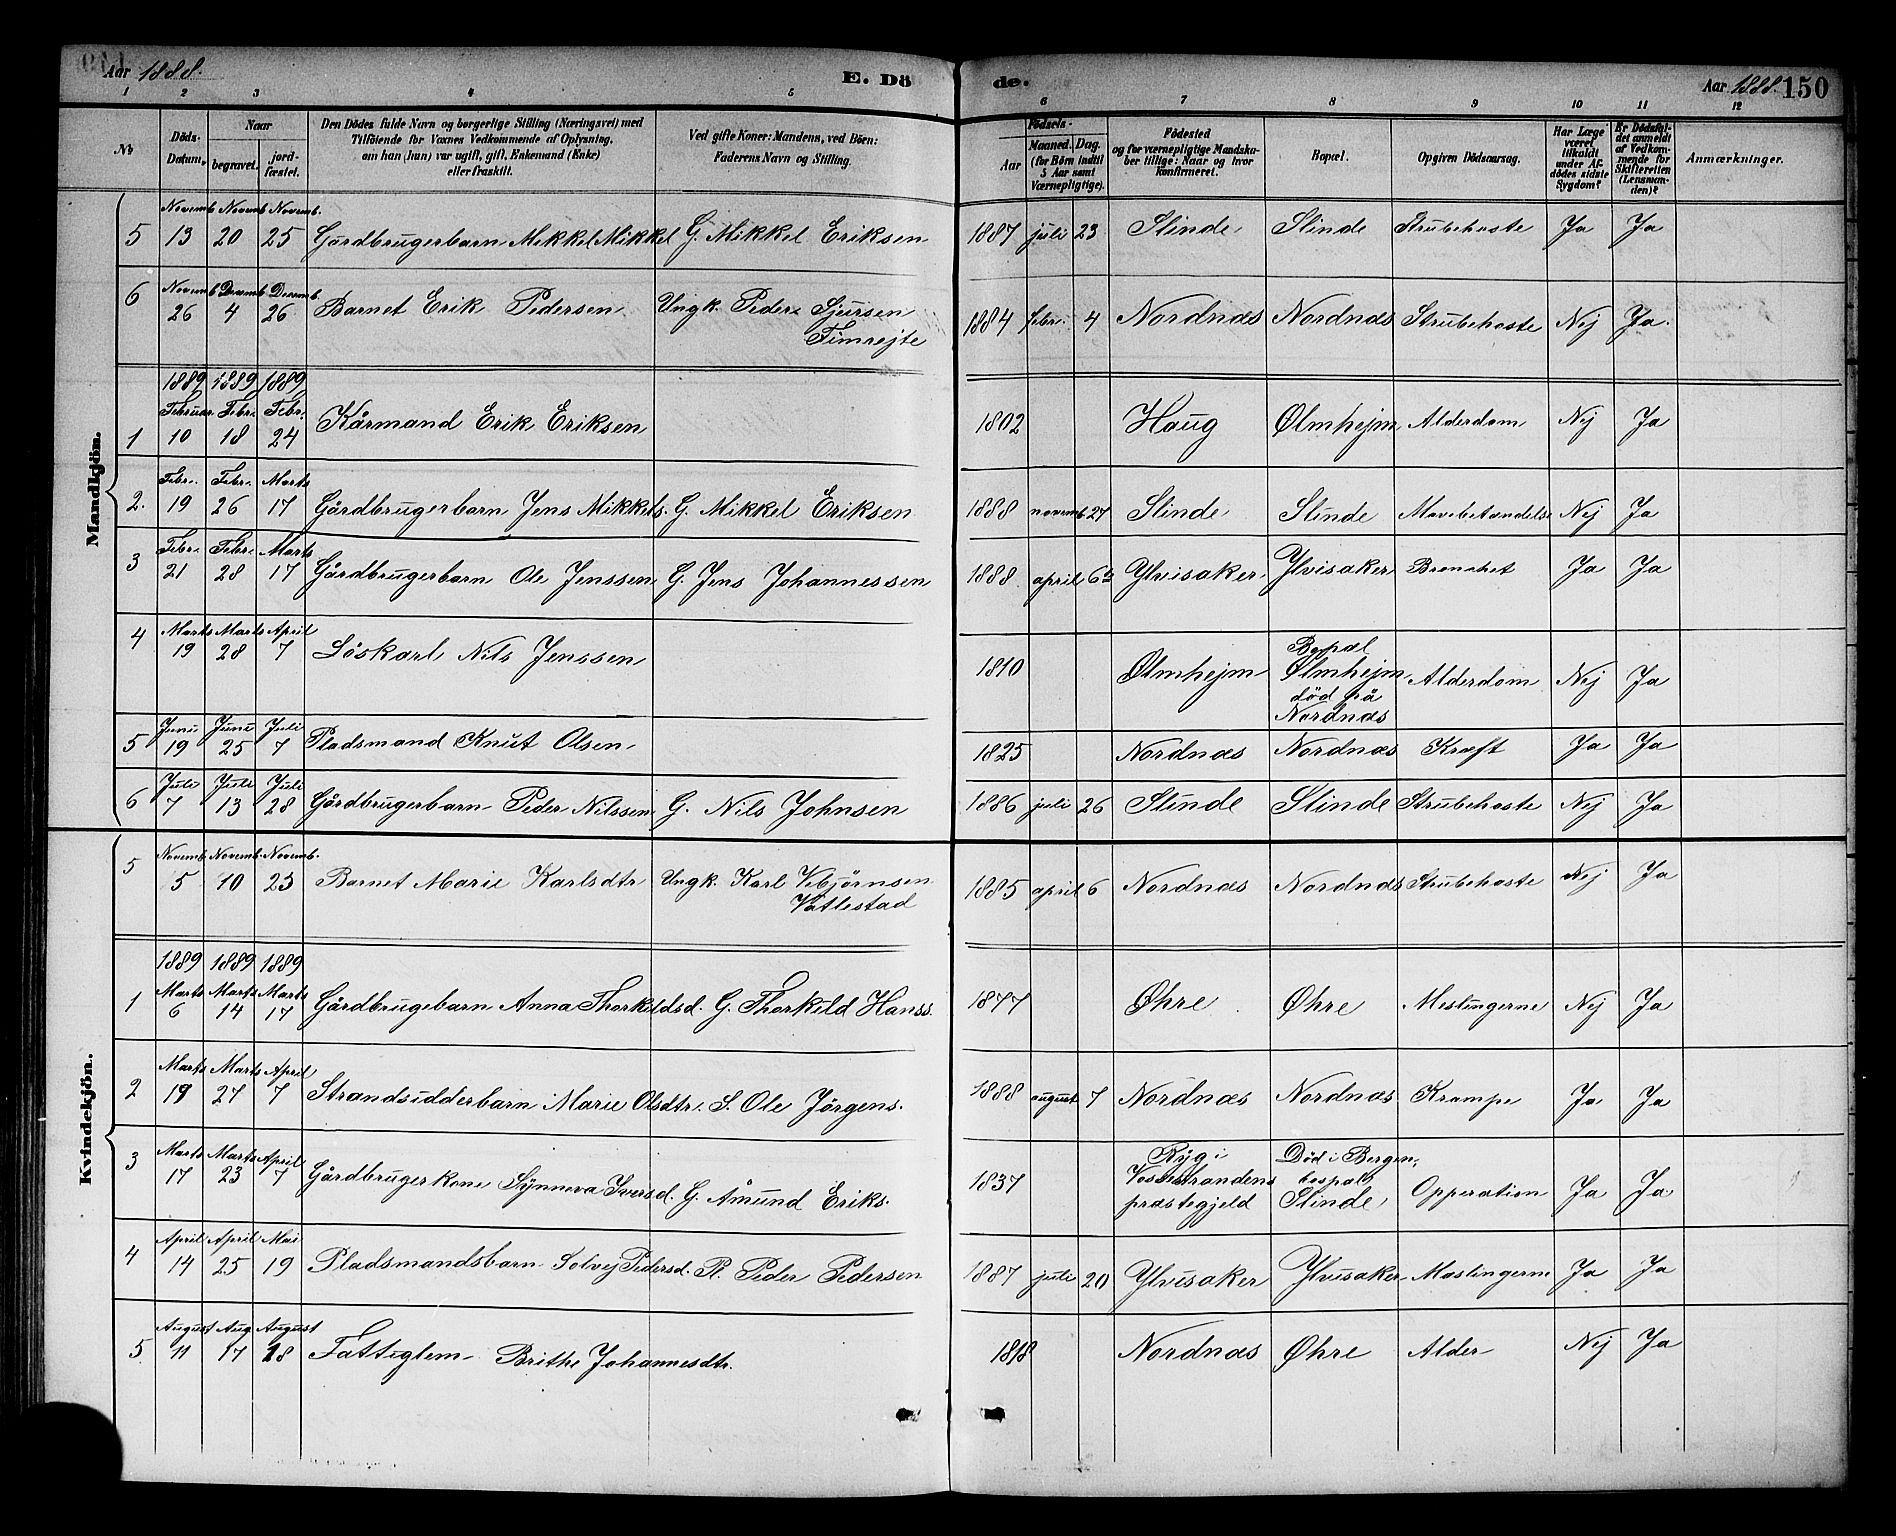 Aar 1888.
E. Dö
de.
Aar 1888. 150
1 2 3 4 5 6 7 8 9 10 11 12
No
Döds-Datum.
Naar
begravet.
jord-fæstet.
Den Dödes fulde Navn og borgerlige Stilling (Næringsvei) med
Tilföiende for Voxnes Vedkommende af Oplysning,
om han (hun) var ugift, gift, Enkemand (Enke)
eller fraskilt.
Ved gifte Koner: Mandens, ved Börn:
Faderens Navn og Stilling.
Födsels-
Aar
Maaned. Dag.
(for Börn indtil
5 Aar samt
Værnepligtige).
Födested
og for værnepligtige Mandska-
ber tillige: Naar og hvor
konfirmeret.
Bopæl.
Opgiven Dödsaarsag.
Har Læge
været
tilkaldt
under Af-
dödes sidste
Sygdom?
Er Dödsfal-
det anmeldt
af Vedkom-
mende for
Skifteretten
(Lensman-
den)?
Anmærkninger.
Mandkjön.
5 Novemb 13 Novemb 20 Novemb. 25 Gårdbrugerbarn Mikkel Mikkel G. Mikkel Eriksen 1887 juli 23 Slinde Slinde Strubehoste Ja Ja
6 Novemb 26 Decemb 4 Decemb. 26 Barnet Erik Pedersen Ungk. Peder Sjursen
Timrejte 1884 febr. 4 Nordnæs Nordnæs Strubehoste Nej Ja.
1889 1889 1889
1 Februar 10 Febr. 18 Febr. 24 Kårmand Erik Eriksen 1802 Haug Ølmhejm Alderdom Nej Ja
2. Febr. 19 Febr. 26 Marts 17 Gårdbrugerbarn Jens Mikkels. G. Mikkel Eriksen 1888 novemb 27 Slinde Slinde Mavebetændelse Nej Ja
3 Febr. 21 Febr. 28 Marts 17 Gårdbrugerbarn Ole Jenssen G. Jens Johannessen 1888 april 6te Ylvisaker Ylvisaker Bronchet Ja Ja
4 Marts 19 Marts 28 April 7 Löskarl Nils Jenssen 1810 Ølmhejm Bopæl
Ølmhejm
död på
Nordnæs Alderdom Nej Ja
5 Juni 19 Juni 25 Juli 7 Pladsmand Knut Olsen 1825 Nordnæs Nordnæs Kræft Ja Ja
6 Juli 7 Juli 13 Juli 28 Gårdbrugerbarn Peder Nilssen G. Nils Johnsen 1886 juli 26 Slinde Slinde Strubehoste Nej Ja
Kvindekjön.
5 Novemb 5 Novemb. 10 Novemb. 23 Barnet Marie Karlsdtr Ungk. Karl Vebjørnsen
Vatlestad 1885 april 6 Nordnæs Nordnæs Strubehoste Nej Ja
1889 1889 1889
1 Marts 6 Marts 14 Marts 17 Gårdbrugebarn Anna Thorkildsd. G. Thorkild Hanss. 1877 Øhre Øhre Meslingerne Nej Ja
2 Marts 19 Marts 27 April 7 Strandsidderbarn Marie Olsdtr. S. Ole Jörgens. 1888 august 7 Nordnæs Nordnæs Krampe Ja Ja
3 Marts 17 Marts 23 April 7 Gårdbrugerkone Synneva Iversd. G. Åmund Eriks. 1837 Ryg i
præstegjeld Död i Bergen,
bopæl
Slinde Opperation Ja Ja
4 April 14 April 25 Mai 19 Pladsmandsbarn Solvej Pedersd. P. Peder Pedersen 1887 juli 20 Ylvisaker Ylvisaker Mæslingerne Ja Ja
5 August 11 Aug 17 August 18 Fattiglem Brithe Johannesdtr. 1818 Nordnæs Øhre Alder Nej Ja